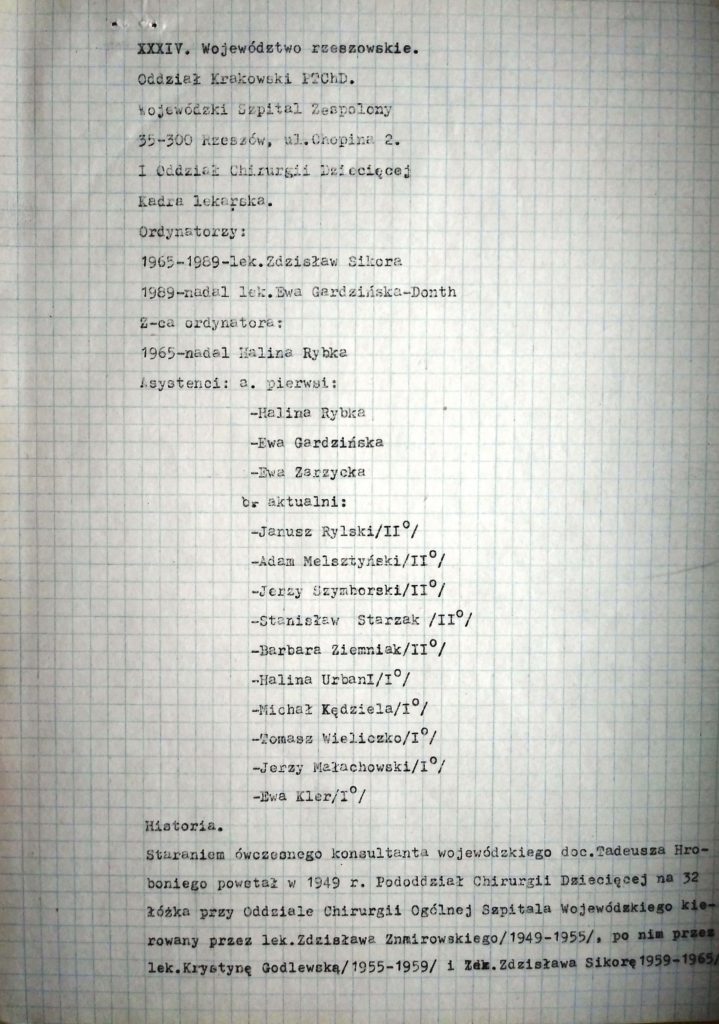 XXXIV. Województwo rzeszowskie.
Oddział Krakowski PTChD.
Wojewódzki Szpital Zespolony
35-300 Rzeszów, ul.Chopina 2.
I Oddział Chirurgii Dziecięcej
Kadra lekarska.
Ordynatorzy:
1965-1989-lek.Zdzisław Sikora
1989-nadal lek.Ewa Gardzińska-Donth
Z-ca ordynatora:
1965-nadal Halina Rybka
Asystenci: a. pierwsi:
-Halina Rybka
-Ewa Gardzińska
-Ewa Zarzycka
b. aktualni:
-Janusz Rylski/II°/
-Adam Melsztyński/II°/
-Jerzy Szymborski/II°/
-Stanisław Starzak /II°/
-Barbara Ziemniak/II°/
-Halina UrbanI/I°/
-Michał Kędziela/I°/
-Tomasz Wieliczko/I°/
-Jerzy Małachowski/I°/
-Ewa Kler/I°/
Historia.
Staraniem ówczesnego konsultanta wojewódzkiego doc.Tadeusza Hro-
boniego powstał w 1949 r. Pododdział Chirurgii Dziecięcej na 32
łóżka przy Oddziale Chirurgii Ogólnej Szpitala Wojewódzkiego kie-
rowany przez lek.Zdzisława Znmirowskiego/1949-1955/, po nim przez
lek.Krystynę Godlewską/1955-1959/ i lek.Zdzisława Sikorę1959-1965/